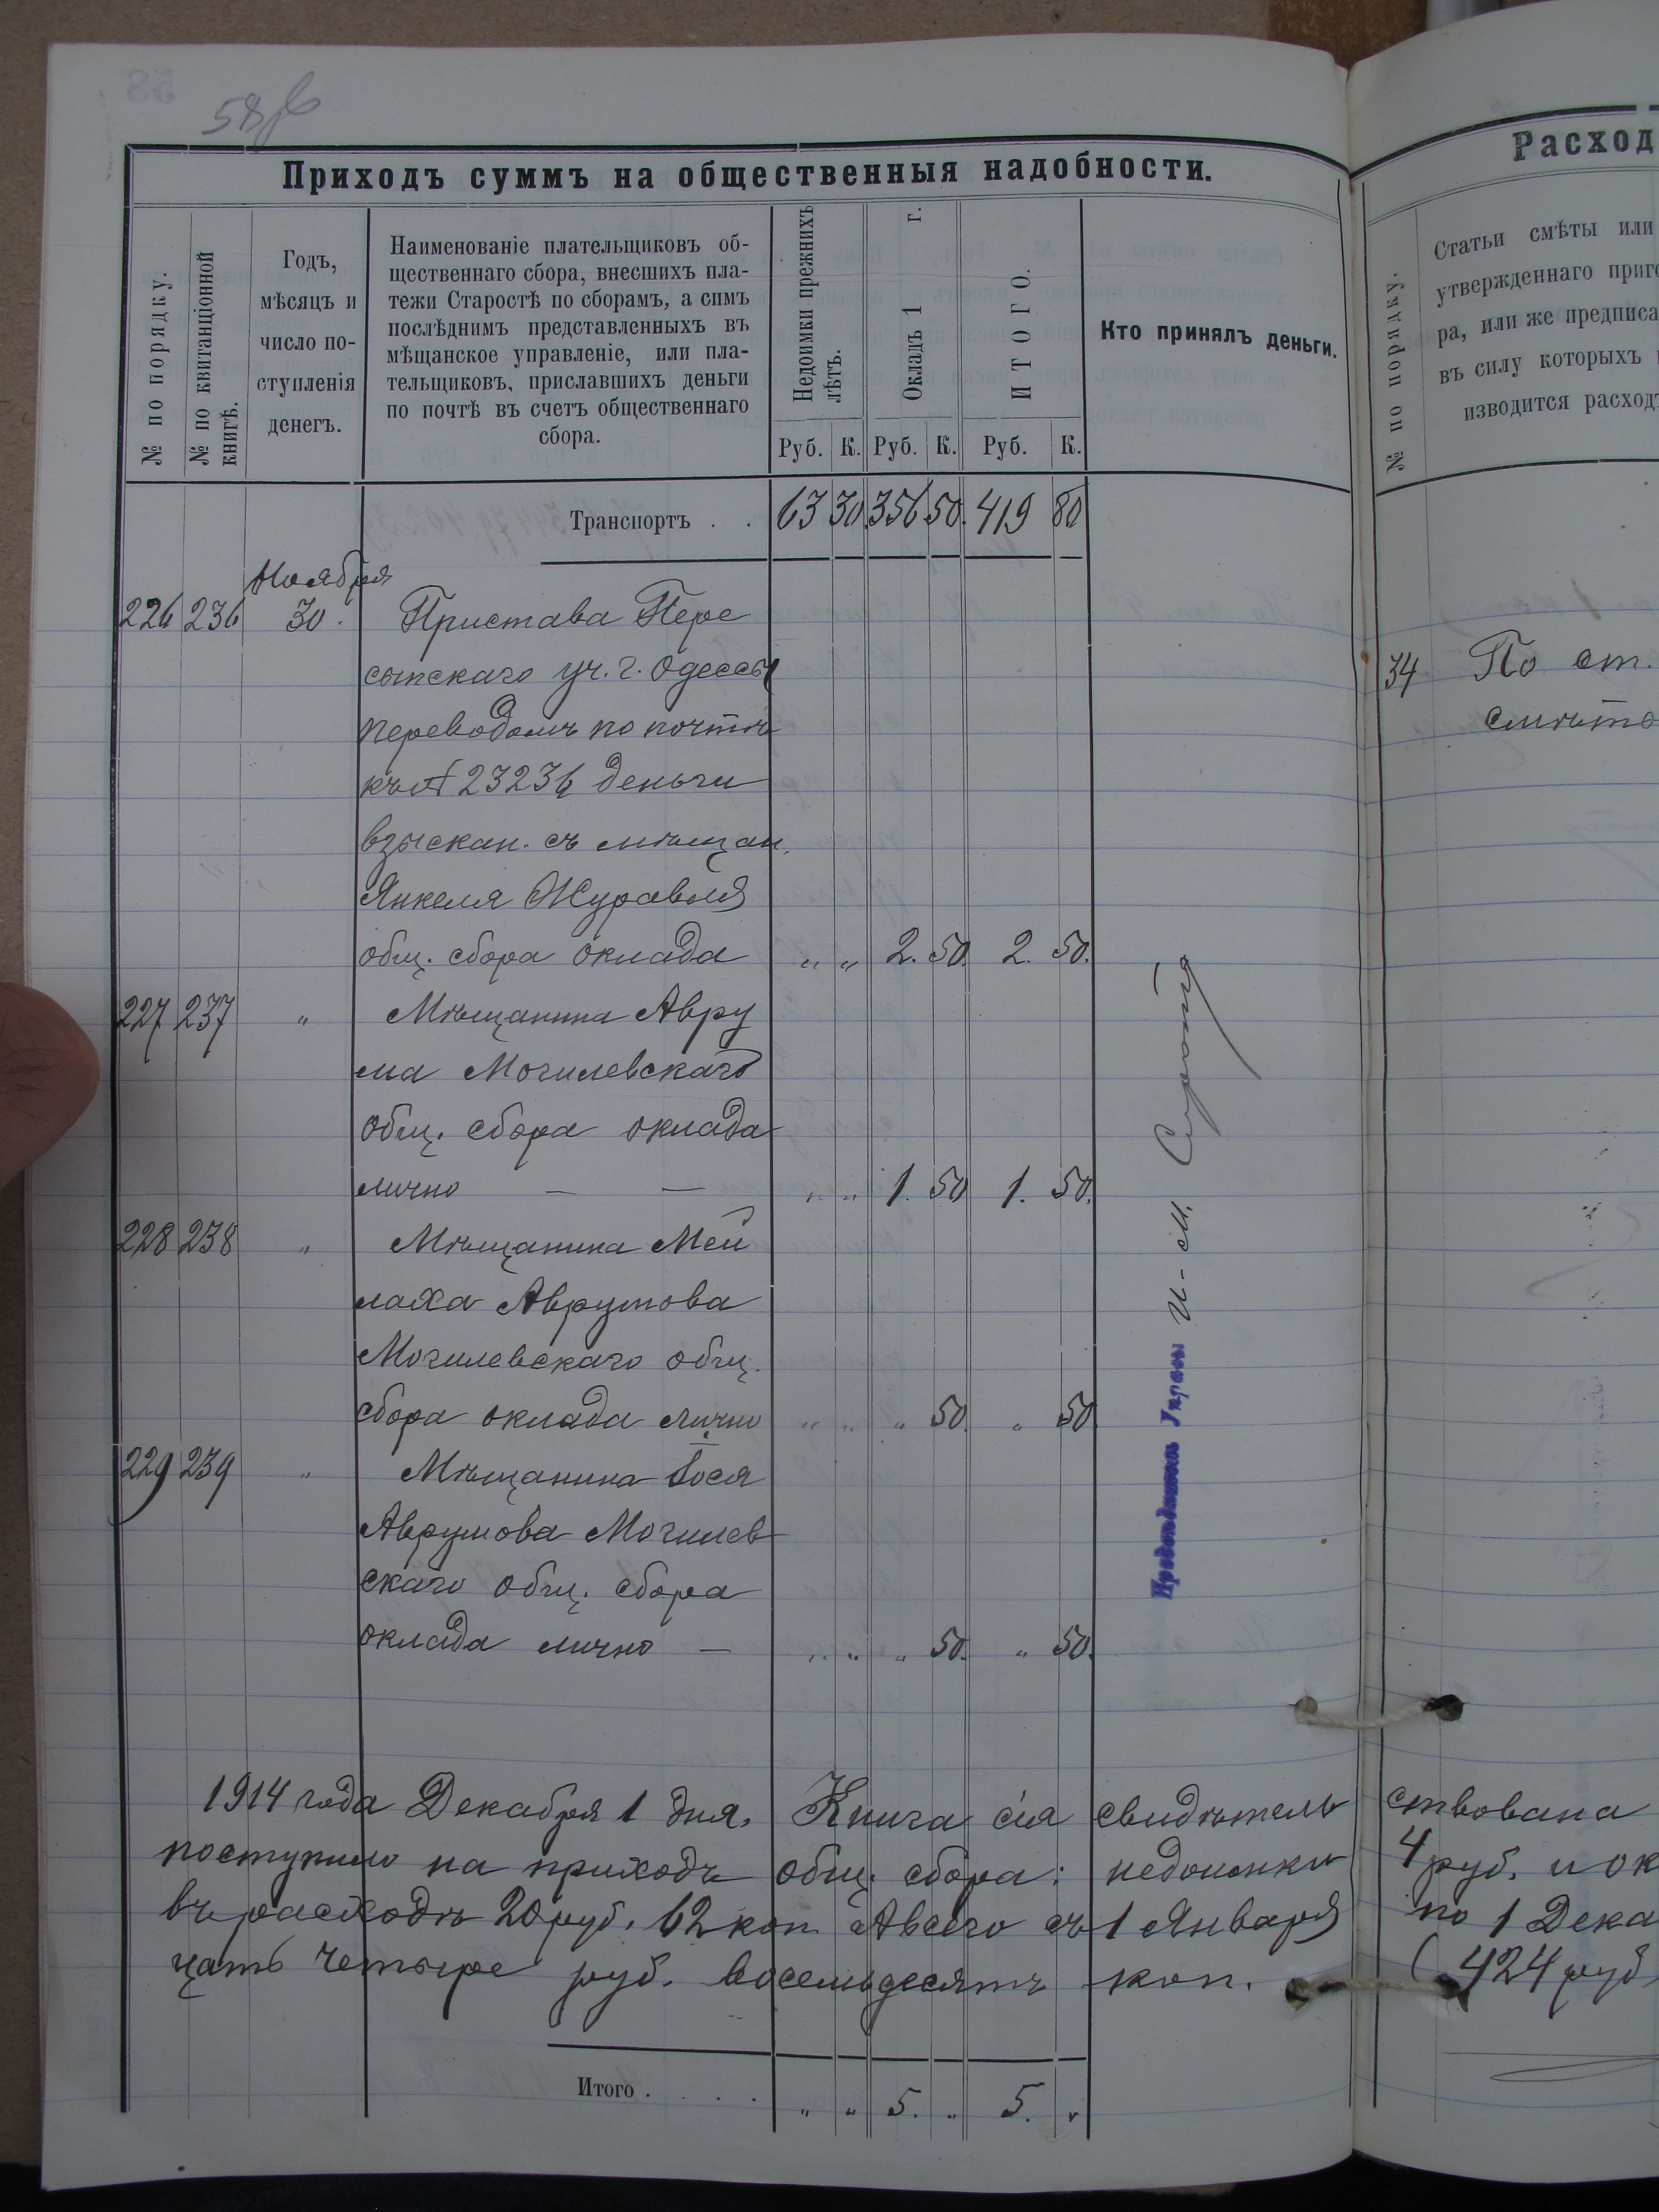 58 об
Приходъ суммъ на общественныя надобности.
№ по порядку.
№ по квитанціонной книгѣ.
Годъ,
мѣсяцъ и
число по-
ступленія
денегъ.
Наименованіе плательщиковъ об-
щественнаго сбора, внесшихъ пла-
тежи Старостѣ по сборамъ, а симъ
послѣднимъ представленныхъ въ
мѣщанское управленіе, или пла-
тельщиковъ, приславшихъ деньги
по почтѣ въ счетъ общественнаго
сбора.
Недоимки прежнихъ
лѣтъ.
Окладъ 1 г.
ИТОГО.
Кто принялъ деньги.
Руб. К. Руб. К. Руб. К.
Транспортъ . . 63 30 356 50. 419 80
Ноября
226 236 30. Пристава Пере
сыпскаго уч. г. Одессы
переводомъ по почтѣ
къ № 23236 деньги
взыскан. съ мѣщан.
Янкеля Журавля
общ. сбора оклада „ „ 2. 50. 2. 50.
227 237 „ Мѣщанина Авру
ма Могилевскаго
общ. сбора оклада
лично — — „ „ 1. 50 1. 50.
228 238 „ Мѣщанина Мей
лаха Аврумова
Могилевскаго общ.
сбора оклада лично „ „ „ 50. „ 50
229 239 „ Мѣщанина Іося
Аврумова Могилев
скаго общ. сбора
оклада лично — „ „ „ 50. „ 50.
И. М.
1914 года Декабря 1 дня. Книга сія свидѣтель ствована
поступило на приходъ общ. сбора: недоимки 4 руб. и ок
въ расходъ 20 руб. 62 коп. А всего съ 1 Января по 1 Дека
цать четыре руб. восемьдесятъ коп. (424 руб.
Итого . . . . „ „ 5. „ 5. „
Расход
№ по порядку.
Статьи смѣты или
утвержденнаго приго
ра, или же предписа
въ силу которыхъ
изводится расход
34 По ст.
смѣт